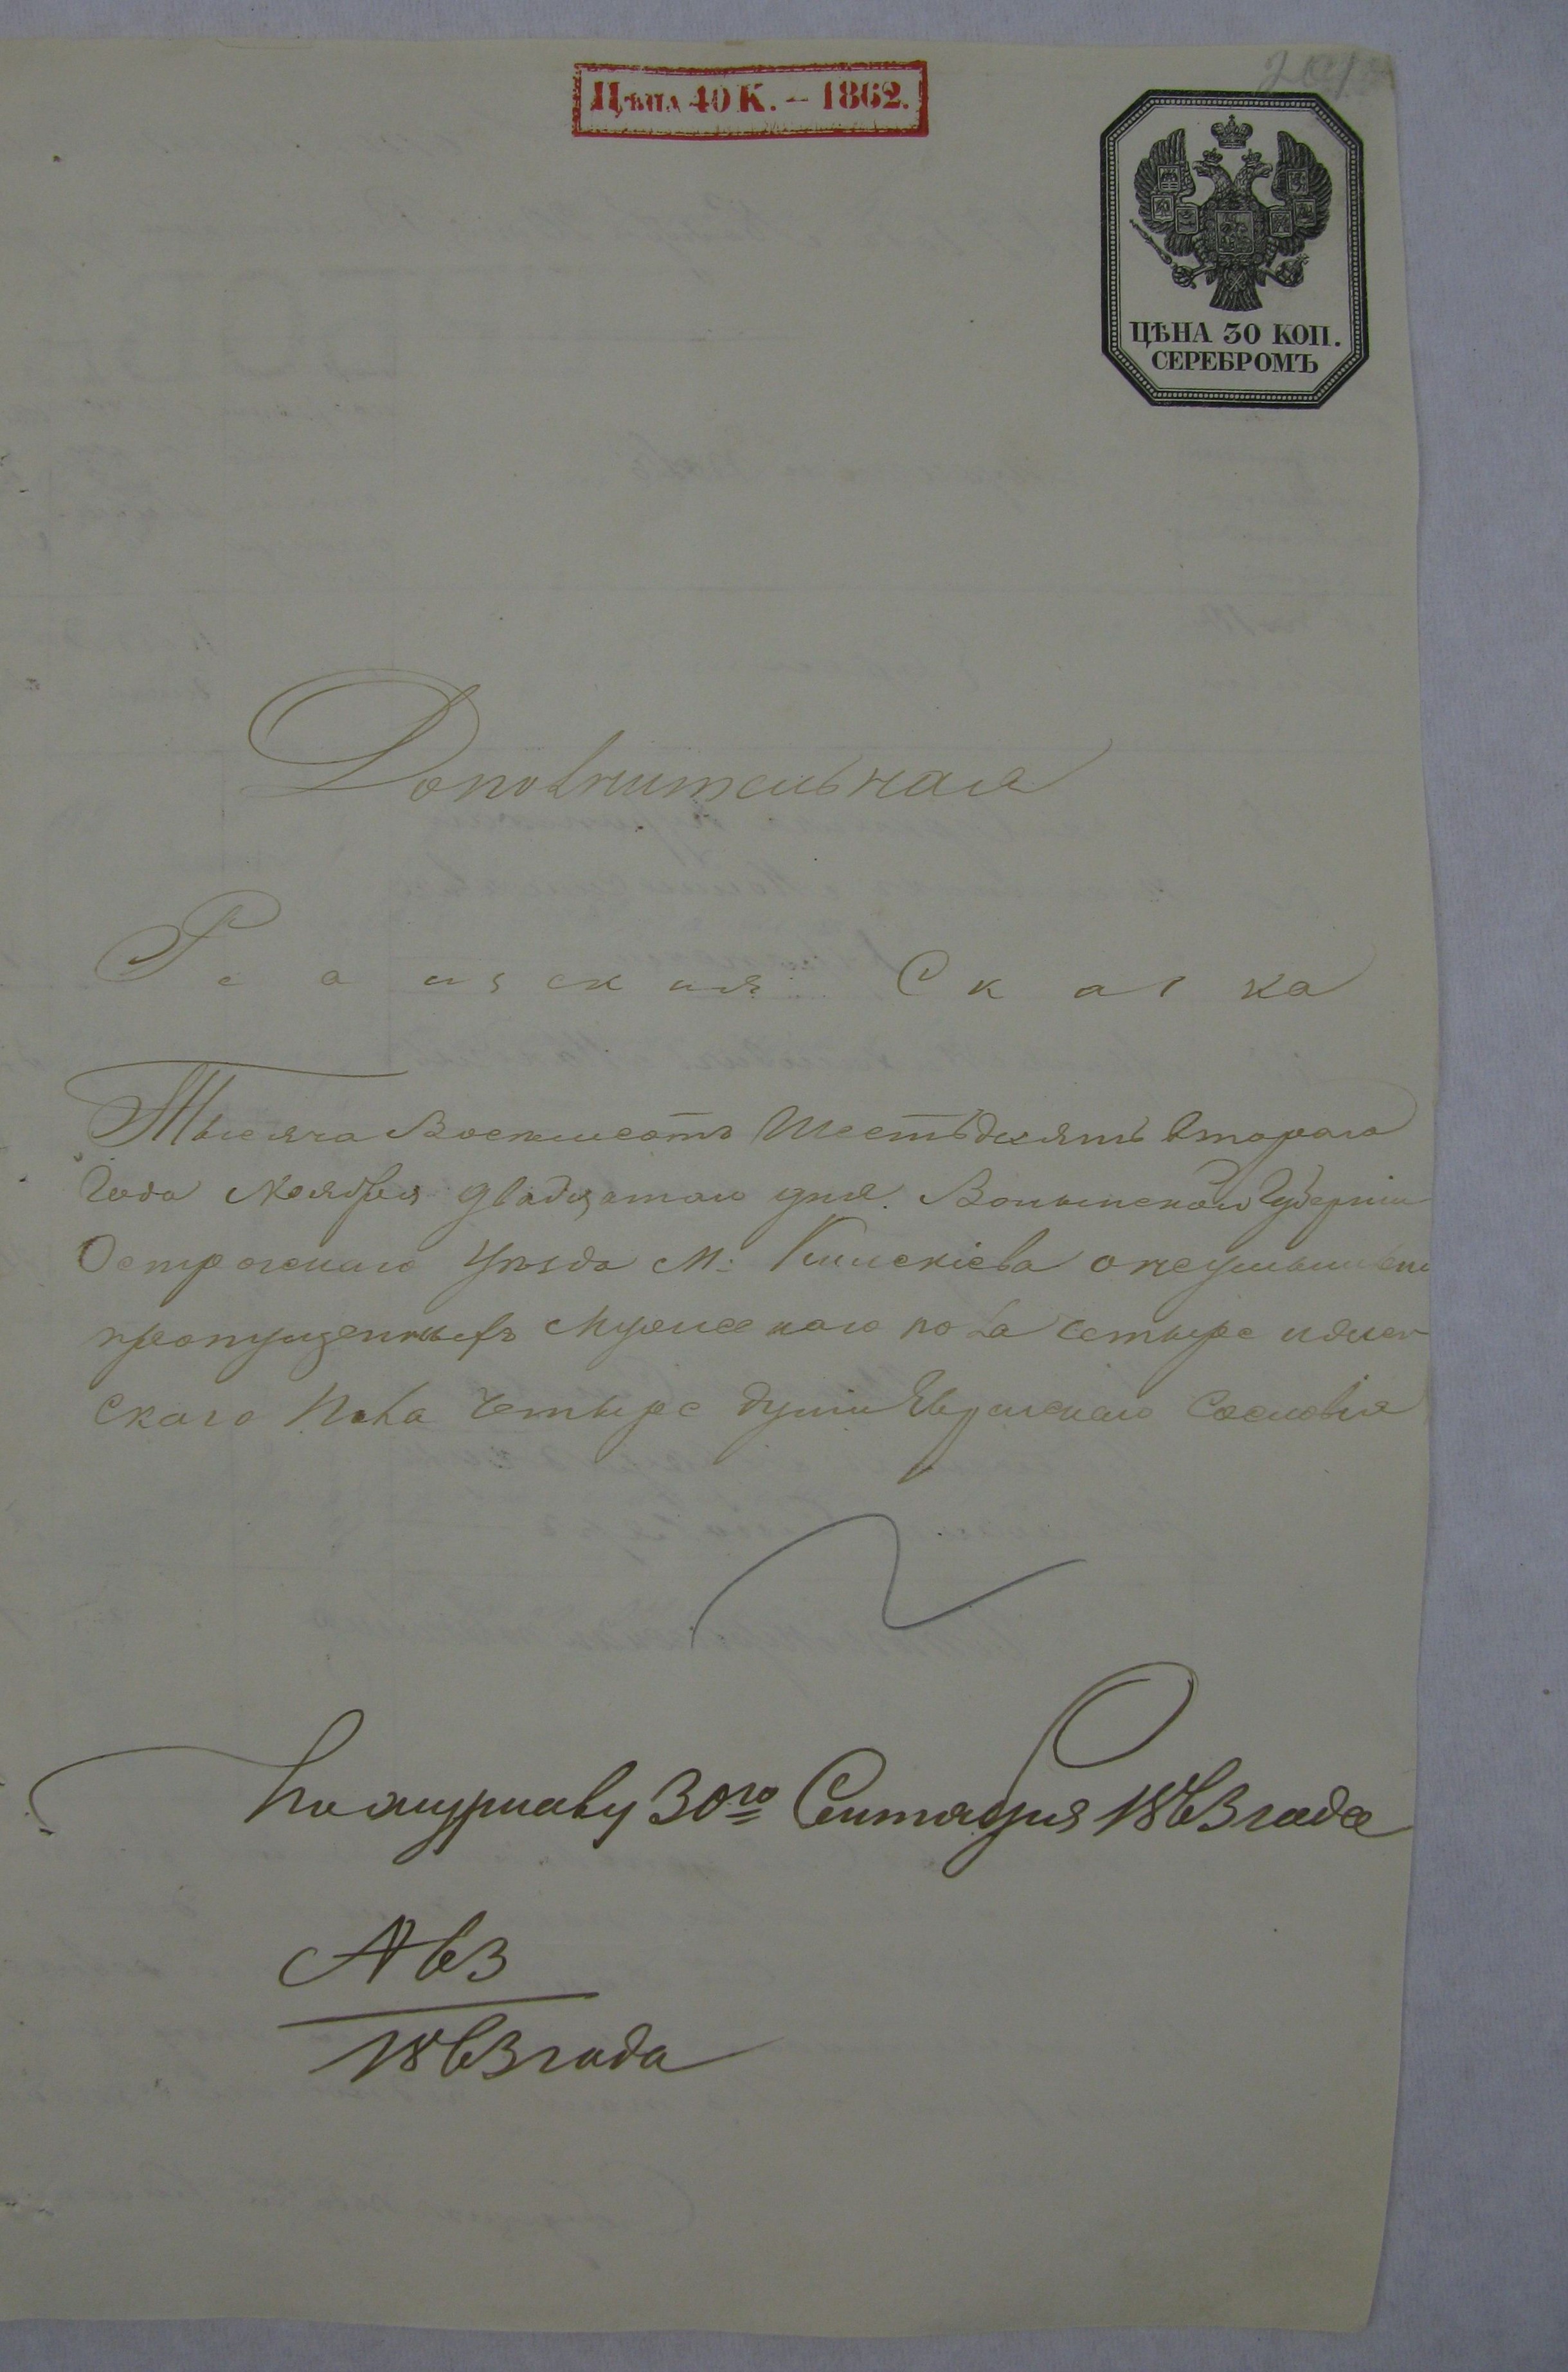 Цѣна 40 К. – 1862.
ЦѢНА 30 КОП.
СЕРЕБРОМЪ
Дополнительная
Скаска
Тысяча Восемьсотъ Шестьдесятъ втораго
Года Ноября двадцатаго дня. Волынской Губерніи
Острожскаго Уѣзда М:
пропущенныхъ Мужескаго пола четыре и женс
скаго Пола четыре души Еврейскаго Сословія
По журналу 30го Сентября 1863 года
№ 63
1863 года